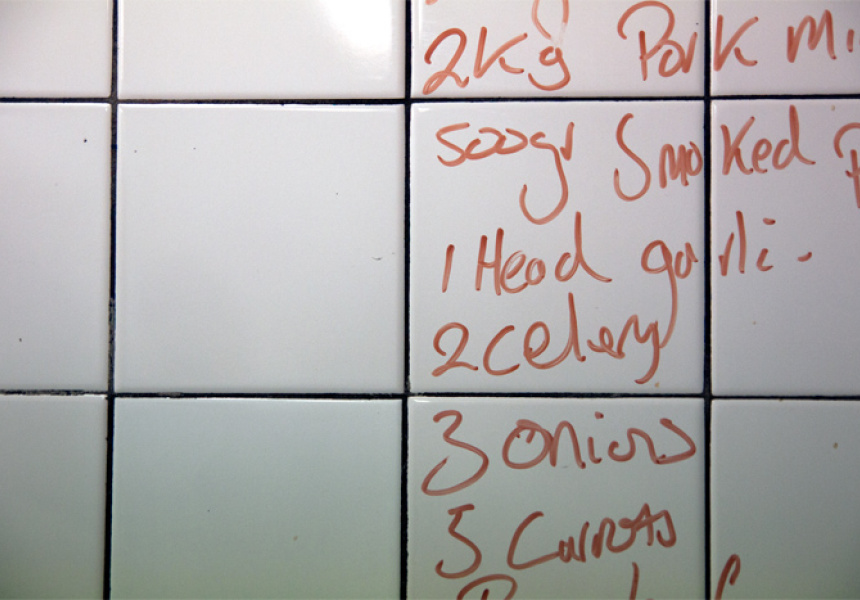 2Kg Pork Mi
500gr Smoked P
1 Head garlic
2 Celery
3 Onions
5 Carrots